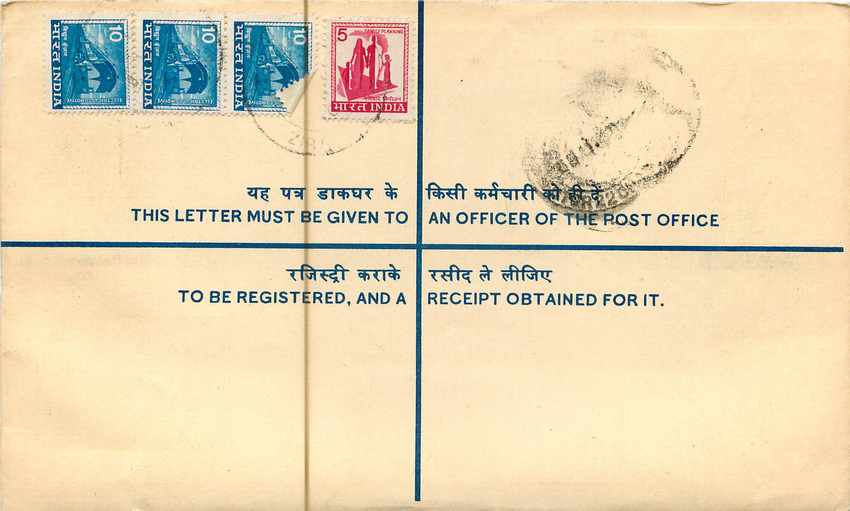 10 10 10 5
भारत INDIA भारत INDIA भारत INDIA
FAMILY PLANNING
भारत INDIA
यह पत्र डाकघर के किसी कर्मचारी को ही दें
THIS LETTER MUST BE GIVEN TO AN OFFICER OF THE POST OFFICE
रजिस्ट्री कराके रसीद ले लीजिए
TO BE REGISTERED, AND A RECEIPT OBTAINED FOR IT.